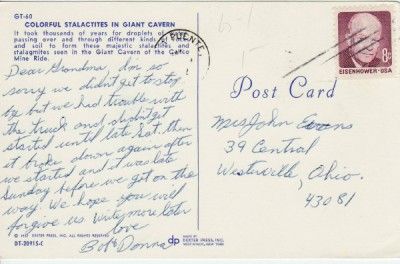 GT-60
COLORFUL STALACTITES IN GIANT CAVERN
It took thousands of years for droplets of
passing over and through different kinds
and soil to form these majestic stalactites and
stalagmites seen in the Giant Cavern of the Calico
Mine Ride.
Dear Grandma, I'm so
sorry we didn't get to stop
by but we had trouble with
the truck and didn't get
started until late Sat. then
it broke down again after
we started and it was late
Sunday before we got on the
way. We hope you will
forgive us. Write more later
love
Bob & Donna
© DEXTER PRESS, INC.
DT-20915-C
PUENTE,
8¢
EISENHOWER·USA
Post Card
Mrs John Evans
39 Central
Westerville, Ohio.
43081
dp
MADE BY
DEXTER PRESS, INC.
WEST NYACK, NEW YORK